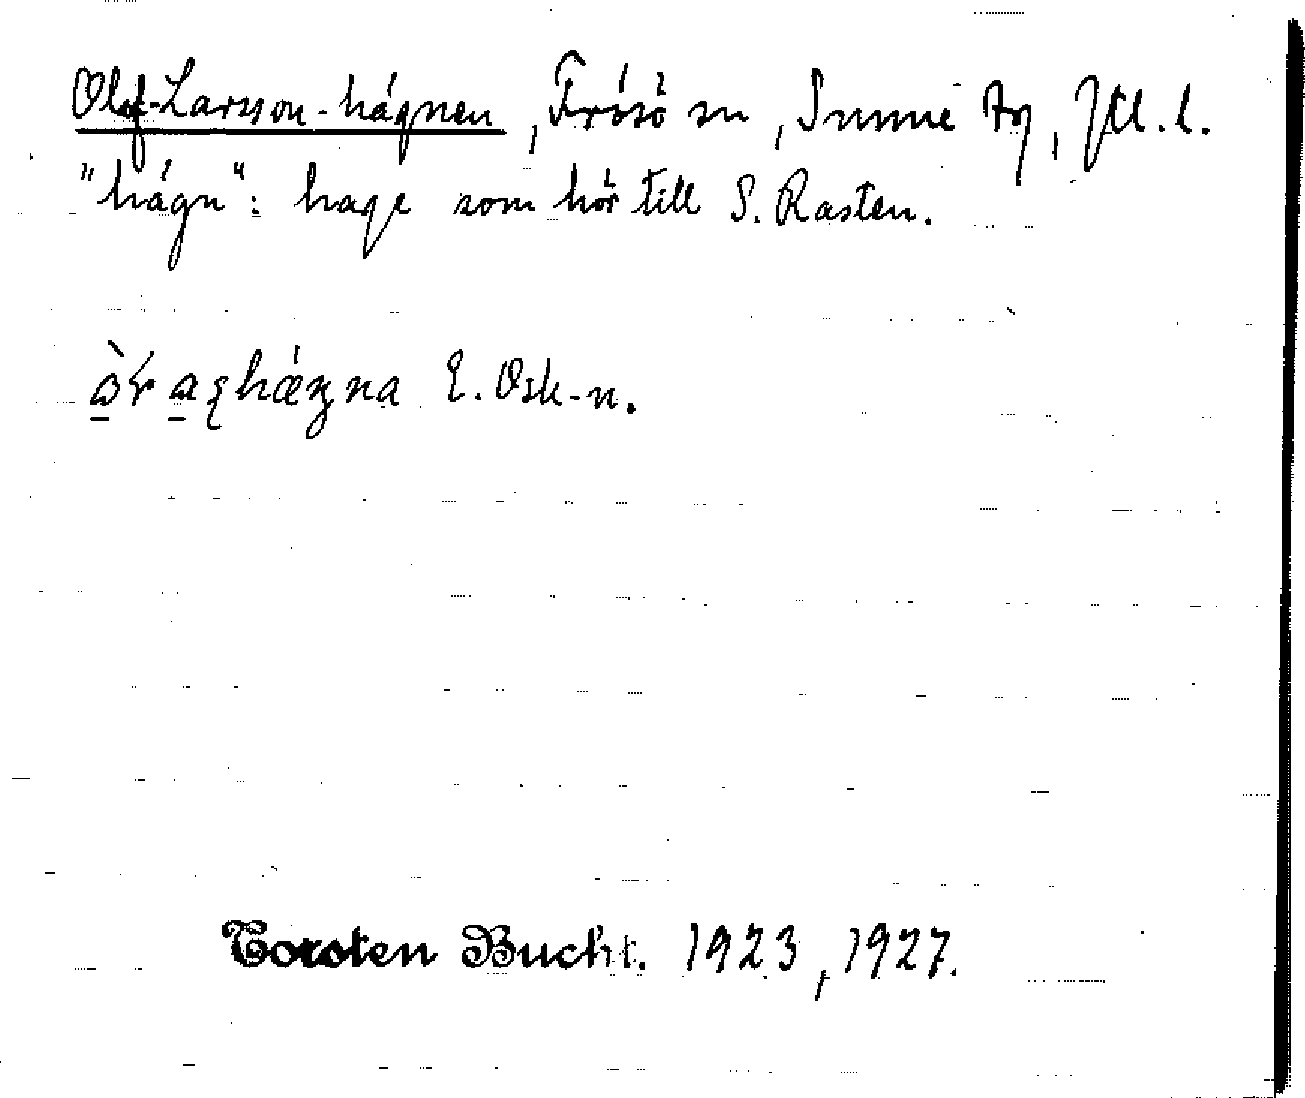 Olof-Larsson-hägnen, Frösö sn, Sunne tg, Jtl. l.
"hägn": hage som hör till S. Rasten.
E. Osk-n.
Torsten Bucht. 1923, 1927.